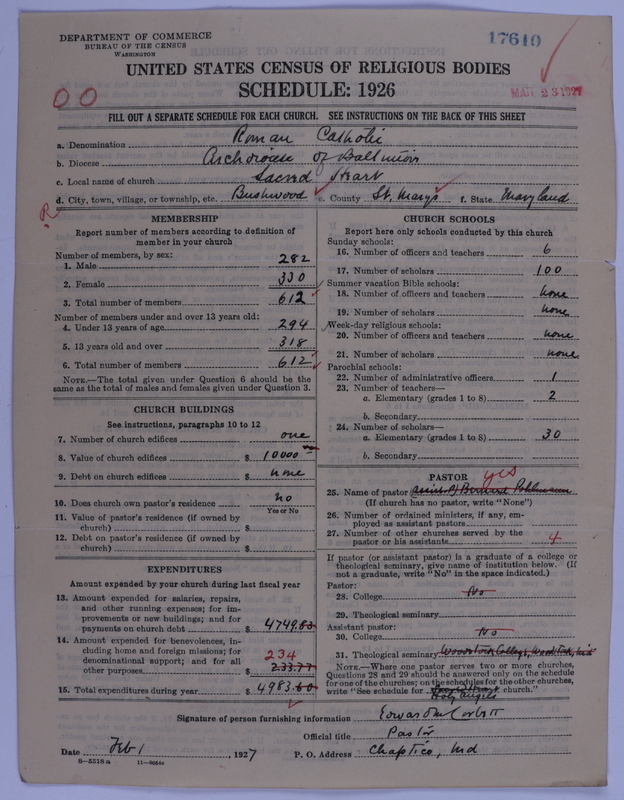 DEPARTMENT OF COMMERCE
BUREAU OF THE CENSUS
WASHINGTON
17640
MAR 23 1927
UNITED STATES CENSUS OF RELIGIOUS BODIES
SCHEDULE: 1926
OO
FILL OUT A SEPARATE SCHEDULE FOR EACH CHURCH. SEE INSTRUCTIONS ON THE BACK OF THIS SHEET
a. Denomination Roman Catholic
b. Diocese Archdiocese of Baltimore
c. Local name of church Sacred Heart
d. City, town, village, or township, etc. Bushwood e. County St. Marys f. State Maryland
R
MEMBERSHIP
Report number of members according to definition of
member in your church
Number of members, by sex:
1. Male 282
2. Female 330
3. Total number of members 612
Number of members under and over 13 years old:
4. Under 13 years of age 294
5. 13 years old and over 318
6. Total number of members 612
NOTE.—The total given under Question 6 should be
same as the total of males and females given under Question 3.
CHURCH BUILDINGS
See instructions, paragraphs 10 to 12
7. Number of church edifices one
8. Value of church edifices $ 10000
9. Debt on church edifices $ none
10. Does church own pastor's residence no
Yes or No
11. Value of pastor's residence (if owned by
church) $
12. Debt on pastor's residence (if owned by
church) $
EXPENDITURES
Amount expended by your church during last fiscal year
13. Amount expended for salaries, repairs,
and other running expenses; for im-
provements or new buildings; and for
payments on church debt $ 4749.83
14. Amount expended for benevolences, in-
cluding home and foreign missions; for
denominational support; and for all
other purposes $ 233.77
234
15. Total expenditures during year $ 4983.60
CHURCH SCHOOLS
Report here only schools conducted by this church
Sunday schools:
16. Number of officers and teachers 6
17. Number of scholars 100
Summer vacation Bible schools:
18. Number of officers and teachers none
19. Number of scholars none
Week-day religious schools:
20. Number of officers and teachers none
21. Number of scholars none
Parochial schools:
22. Number of administrative officers 1
23. Number of teachers—
a. Elementary (grades 1 to 8) 2
b. Secondary
24. Number of scholars—
a. Elementary (grades 1 to 8) 30
b. Secondary
PASTOR yes
25. Name of pastor
(If church has no pastor, write "None")
26. Number of ordained ministers, if any, em-
ployed as assistant pastors
27. Number of other churches served by the
pastor or his assistants 4
If pastor (or assistant pastor) is a graduate of a college or
theological seminary, give name of institution below. (If
not a graduate, write "No" in the space indicated.)
Pastor:
28. College No
29. Theological seminary
Assistant pastor:
30. College No
31. Theological seminary Woodstock College, Woodstock, Md
NOTE.—Where one pastor serves two or more churches,
Questions 28 and 29 should be answered only on the schedule
for one of the churches; on the schedules for the other churches,
write "See schedule for church."
Holy Angels
Signature of person furnishing information Edward M Corbett
Official title Pastor
Date Feb 1, 1927 P. O. Address Chaptico, Md
8—5518 a